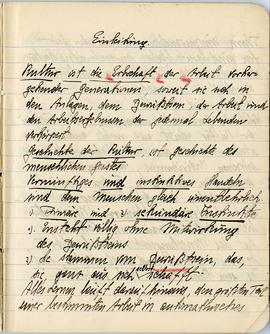 Einleitung
Kultur ist die Erbschaft der Arbeit vorher-
gehender Generationen, soweit sie noch in
den Anlagen, dem Bewußtsein, der Arbeit und
den Arbeitsergebnissen der jedesmal Lebenden
verkörpert
Geschichte der Kultur, ist Geschichte des
menschlichen Geistes
Vernünftiges und instinktives Handeln
sind dem Menschen gleich unentbehrlich
1) Primäre und 2) sekundäre Instinkte
1) Instinkt völlig ohne Mitwirkung
des Bewußtseins
2) die stammen vom Bewußtsein, das
sie ganz aus sich selbst schafft.
Alles Lernen läuft darauf hinaus, den größten Teil
einer bestimmten Arbeit in automatisches